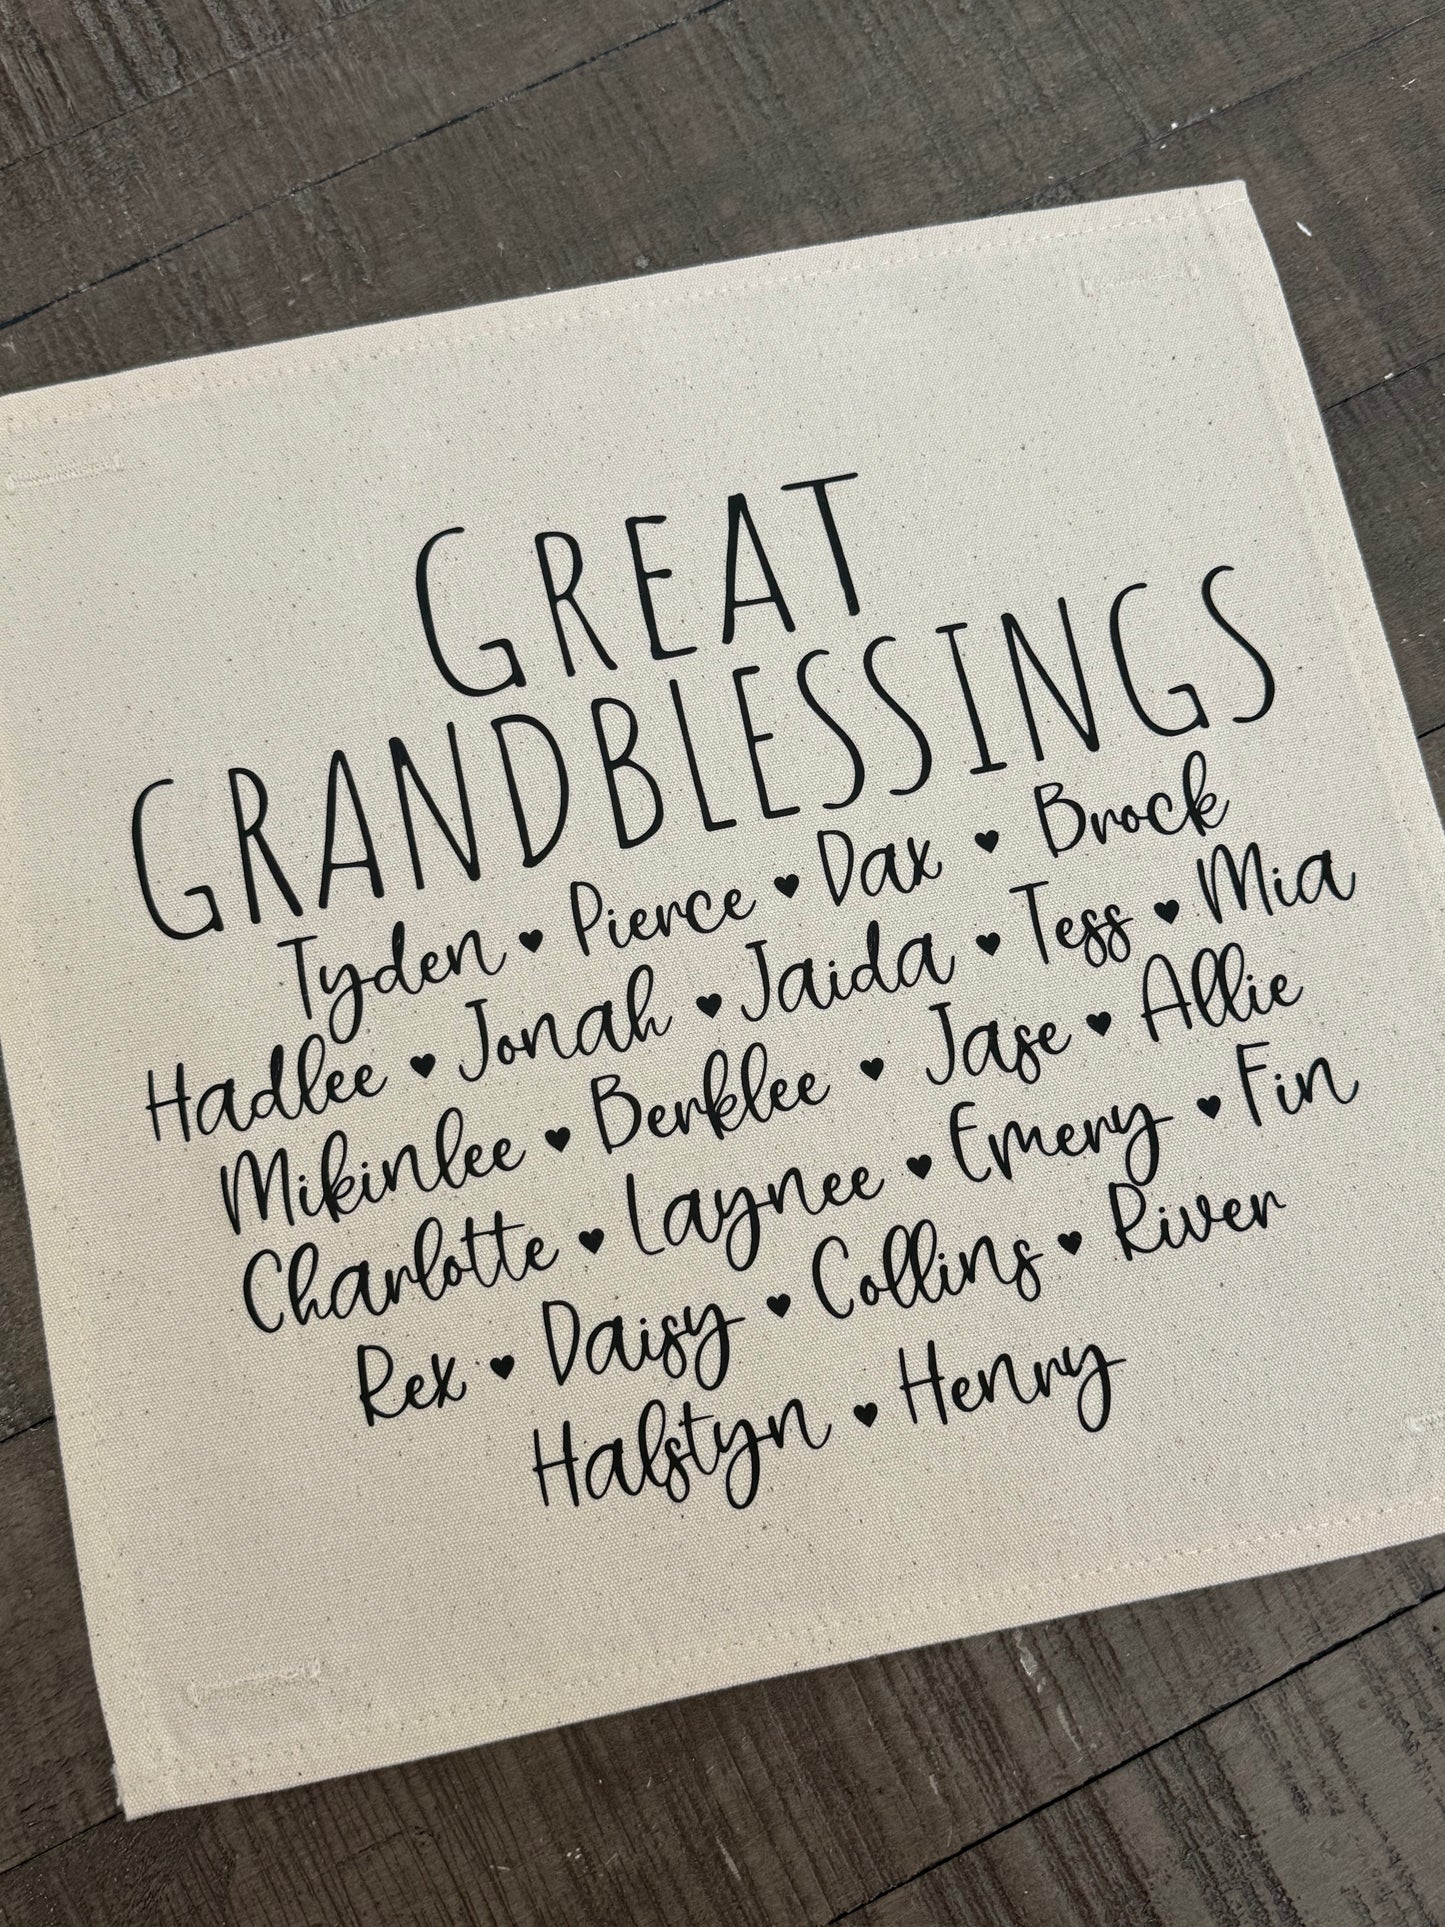 GREAT
GRANDBLESSINGS
Tyden ♥ Pierce ♥ Dax ♥ Brock
Hadlee ♥ Jonah ♥ Jaida ♥ Tess ♥ Mia
Mikinlee ♥ Berklee ♥ Jase ♥ Allie
Charlotte ♥ Laynee ♥ Emery ♥ Fin
Rex ♥ Daisy ♥ Collins ♥ River
Halstyn ♥ Henry